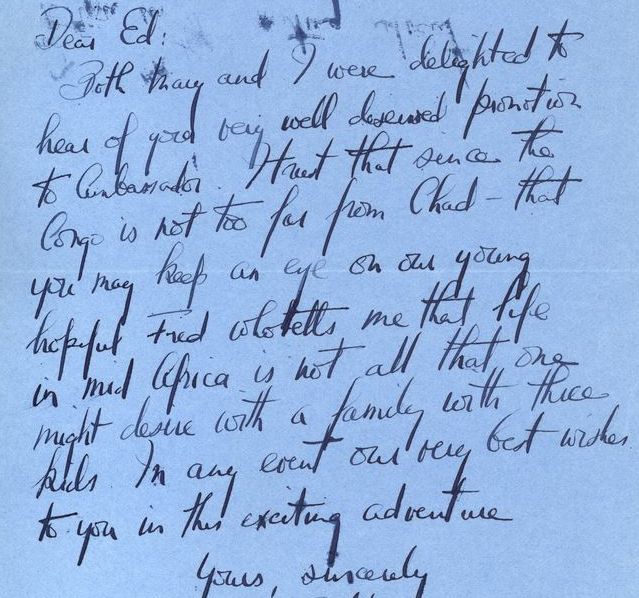 Dear Ed:
Both Mary and I were delighted to
hear of your very well deserved promotion
to Ambassador. I trust that since the
Congo is not too far from Chad – that
you may keep an eye on our young
hopeful Fred who tells me that life
in mid Africa is not all that one
might desire with a family with three
kids In any event our very best wishes
to you in this exciting adventure
Yours, sincerely